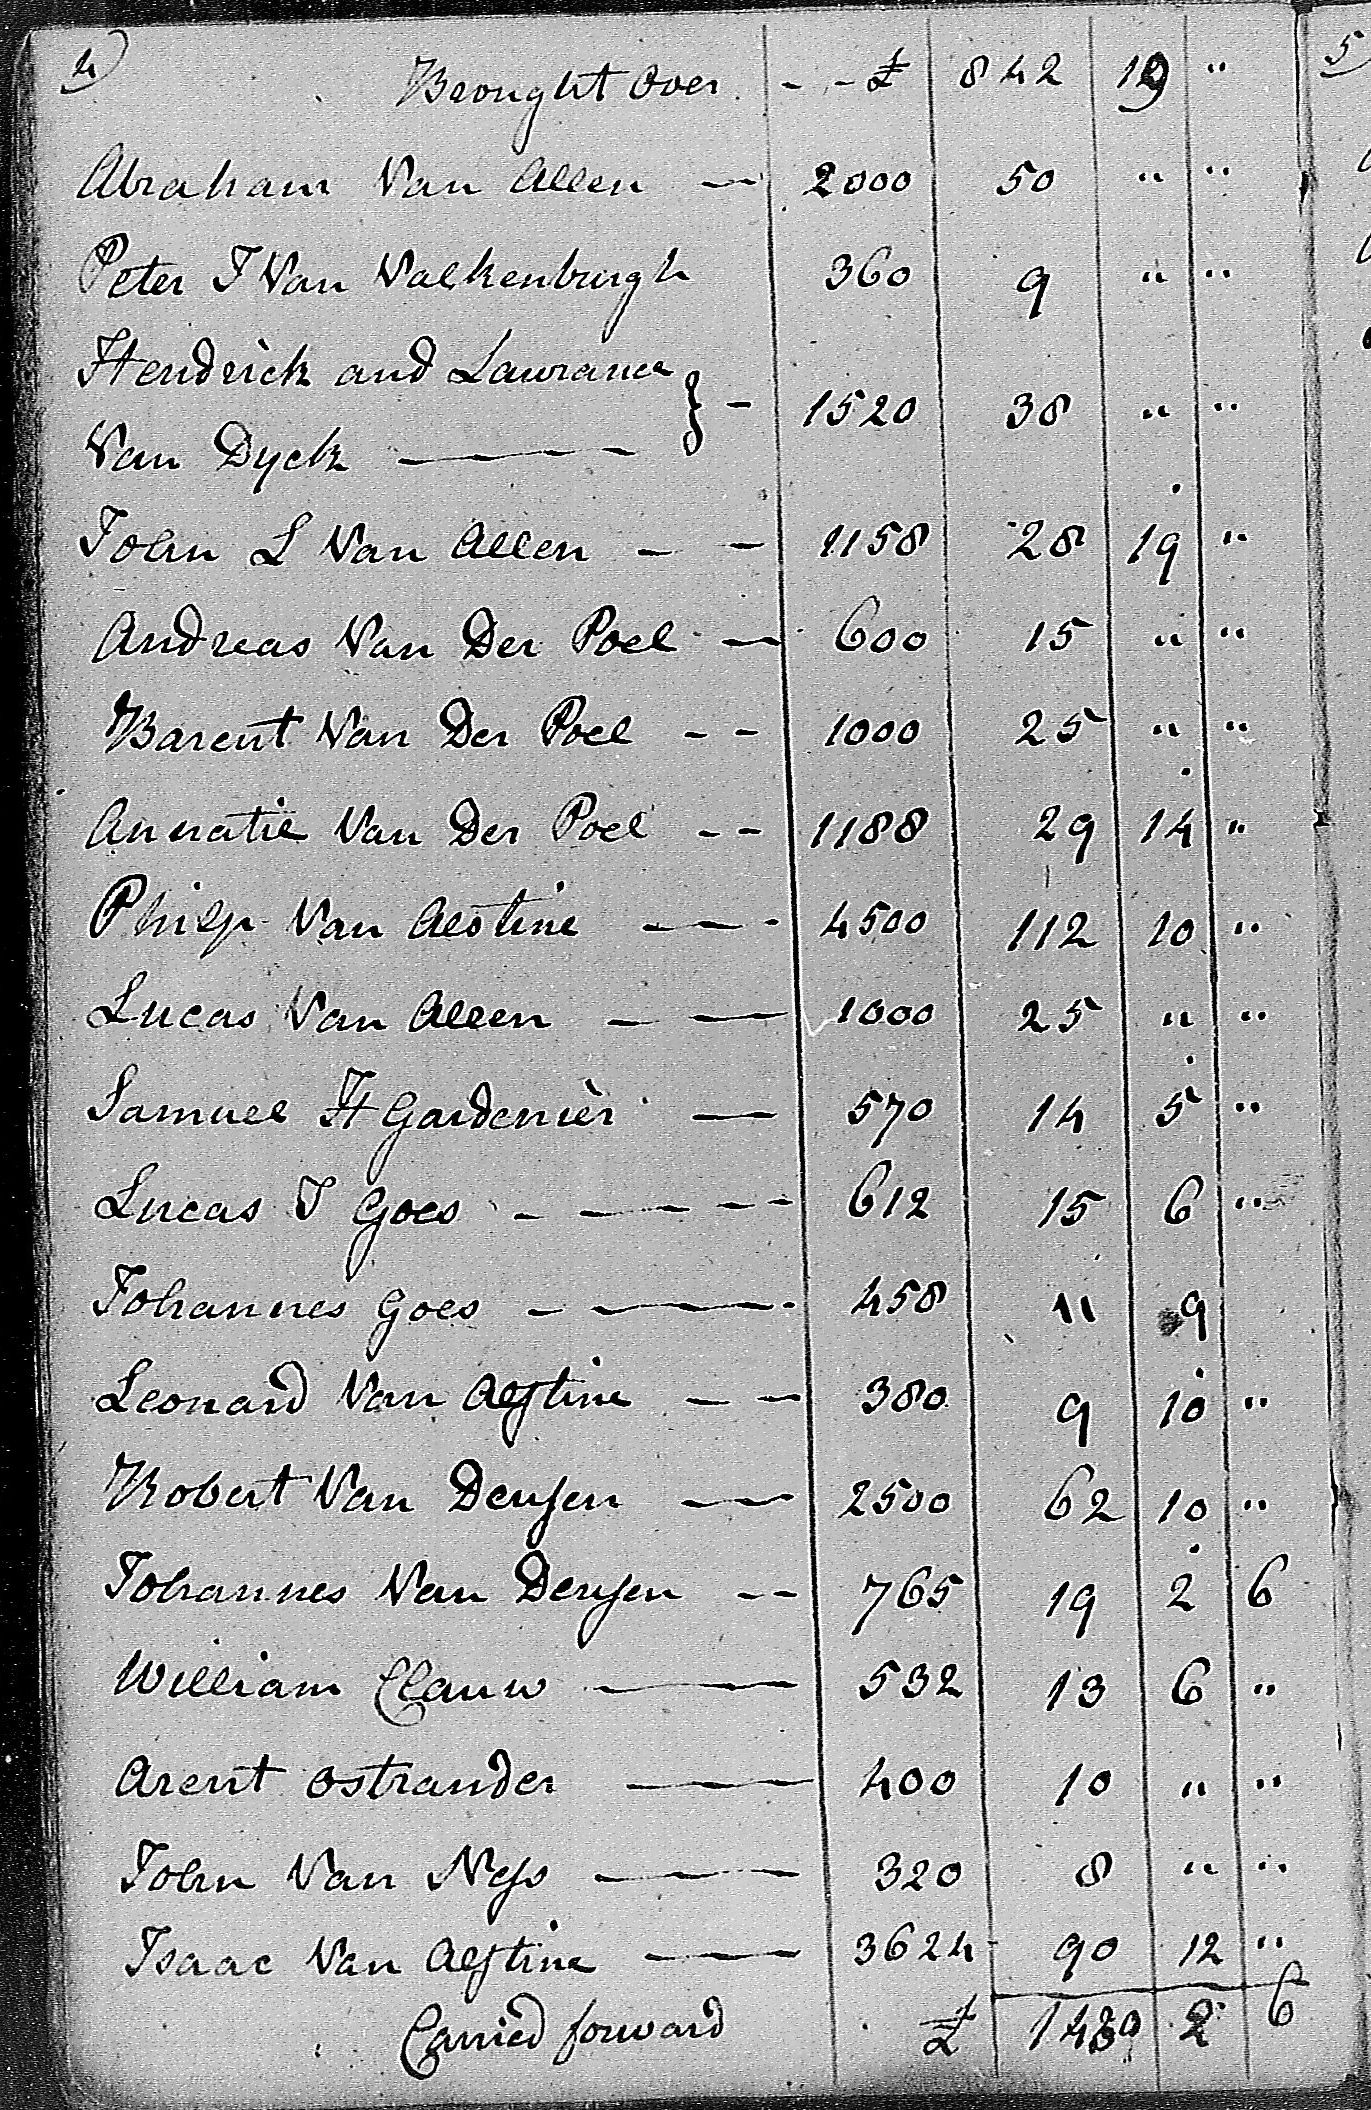 4)
Brought Over - - £ 842 19 "
Abraham Van Allen — 2000 50 " "
Peter J Van Valkenburgh 360 9 " "
Hendrick and Lawrance
Van Dyck — } - 1520 38 " "
John L Van Allen - - 1158 28 19 "
Andreas Van Der Poel — 600 15 " "
Barent Van Der Poel - - 1000 25 " "
Annatie Van Der Poel - - 1188 29 14 "
Philip Van Aelstine — 4500 112 10 "
Lucas Van Allen — 1000 25 " "
Samuel H Gardenier — 570 14 5 "
Lucas J Goes - - - - 612 15 6 "
Johannes Goes — 458 11 9
Leonard Van Alstine - - 380 9 10 "
Robert Van Deusen — 2500 62 10 "
Johannes Van Deusen - - 765 19 2 6
William Clauw — 532 13 6 "
Arent Ostrander — 400 10 " "
John Van Ness — 320 8 " "
Isaac Van Alstine — 3624 90 12 "
Carried forward £ 1430 2 6
5)